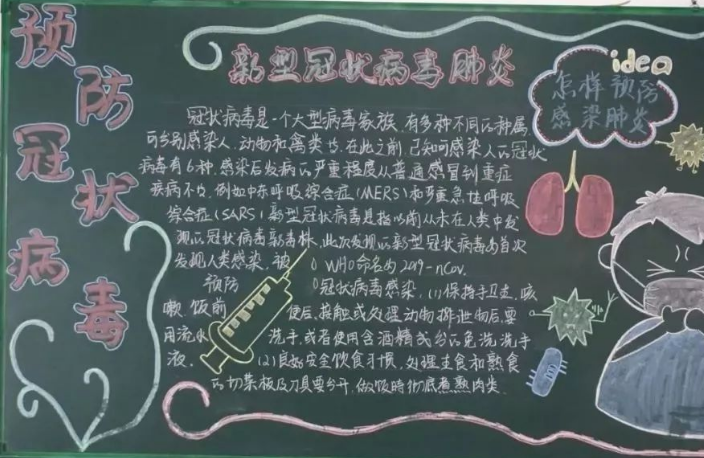 预防冠状病毒
新型冠状病毒肺炎
idea
怎样预防
感染肺炎
冠状病毒是一个大型病毒家族,有多种不同的种属,
可分别感染人、动物和禽类等。在此之前,已知可感染人的冠状
病毒有6种,感染后发病的严重程度从普通感冒到重症
疾病不等,例如中东呼吸综合症(MERS)和严重急性呼吸
综合症(SARS)新型冠状病毒是指以前从未在人类中发
现的冠状病毒新毒株,此次发现的新型冠状病毒为首次
发现人类感染,被WHO命名为2019-nCoV.
预防冠状病毒感染,(1)保持手卫生,咳
嗽、饭前便后,接触或处理动物排泄物后,要
用流水洗手,或者使用含酒精成分的免洗洗手
液.(2)良好安全饮食习惯,处理生食和熟食
的切菜板及刀具要分开,做饭时彻底煮熟肉类